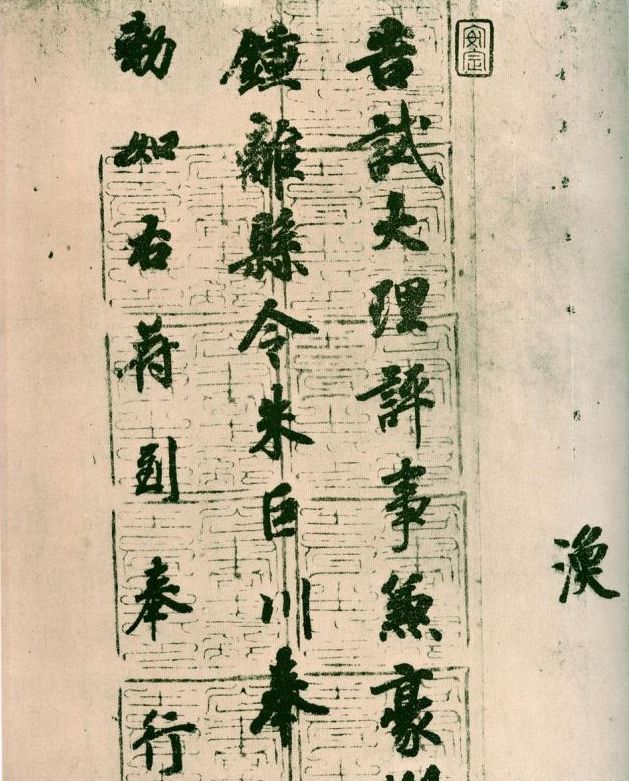 渙
安定
告試大理評事兼豪
鍾離縣令朱巨川奉
勅如右符到奉行